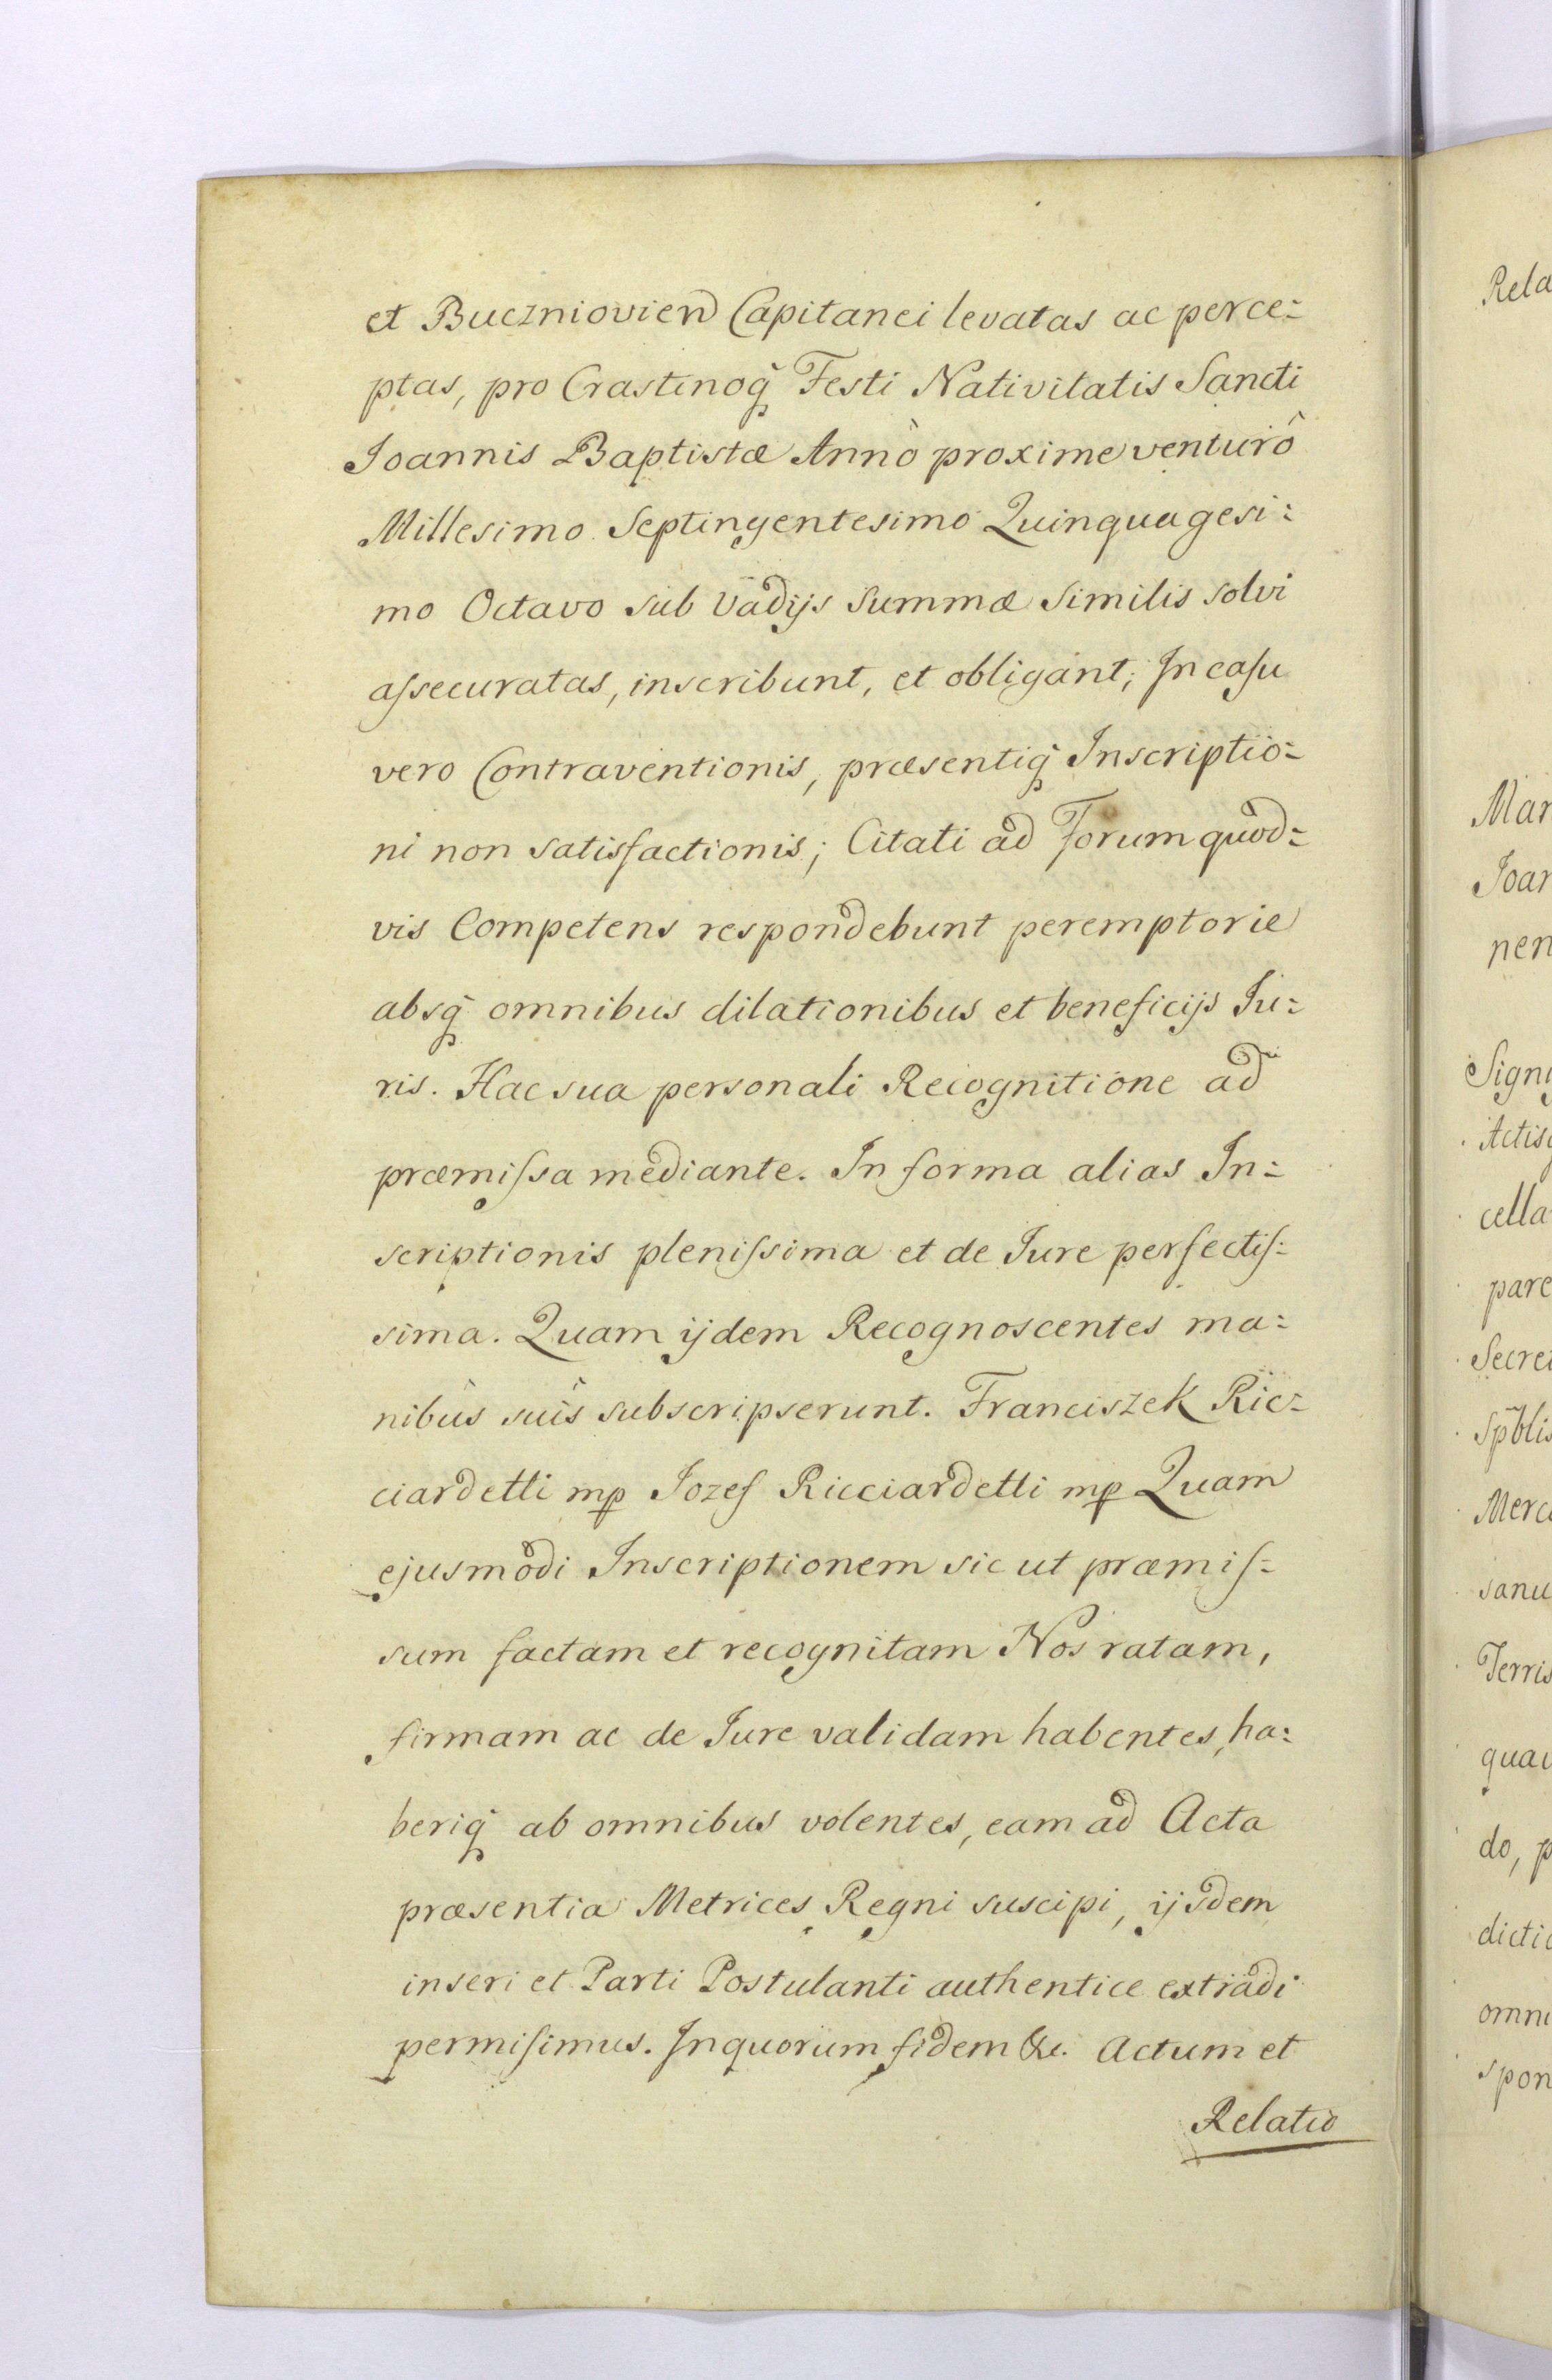 et Buczniovien Capitanei levatas ac perce=
ptas, pro Crastinoq̃ Festi Nativitatis Sancti
Joannis Baptistæ Annô proxime venturô
Millesimo Septingentesimo Quinquagesi=
mo Octavo sub vadijs summæ similis solvi
aſsecuratas, inscribunt, et obligant; In caſu
vero Contraventionis, præsentiq̃ Inscriptio=
ni non satisfactionis; Citati ad Forum quod=
vis Competens respondebunt peremptorie
absq̃ omnibus dilationibus et beneficijs Ju=
ris. Hac sua personali Recognitione ad
præmiſsa mediante. In forma alias In=
scriptionis pleniſsima et de Jure perfectiſ=
sima. Quam ijdem Recognoscentes ma=
nibûs suîs subscripserunt. Franciszek Ric=
ciardetti mp Jozef Ricciardetti mp Quam
ejusmodi Inscriptionem sic ut præmiſ=
sum factam et recognitam Nos ratam,
firmam ac de Jure validam habentes, ha=
beriq̃ ab omnibus volentes, eam ad Acta
præsentia Metrices Regni suscipi, ijsdem
inseri et Parti Postulanti authentice extradi
permiſimus. In quorum fidem &c. Actum et
Relatio
Rela
Mar
Joan
nen
Sign
Actis
cella
pare
Secre
Spbli
Merc
sanu
Terris
qua
do, p
dicti
omni
spon